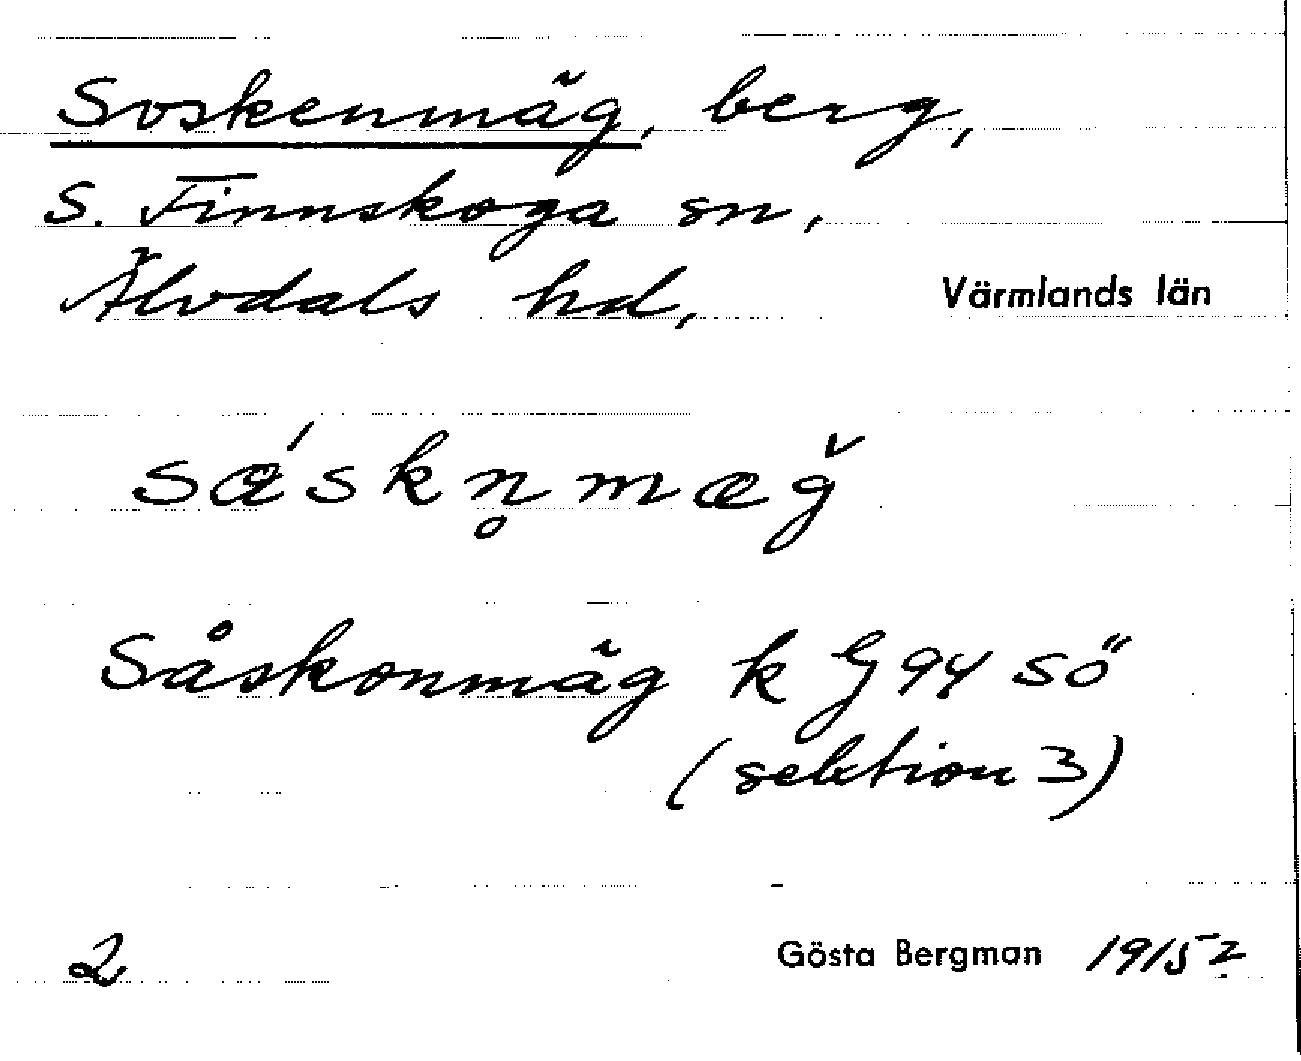 Soskenmäg, berg,
S. Finnskoga sn,
Älvdals hd, Värmlands län
sǽskn̥mæğ
Såskonmäg k G 94 sö
(sektion 3)
2 Gösta Bergman 1915